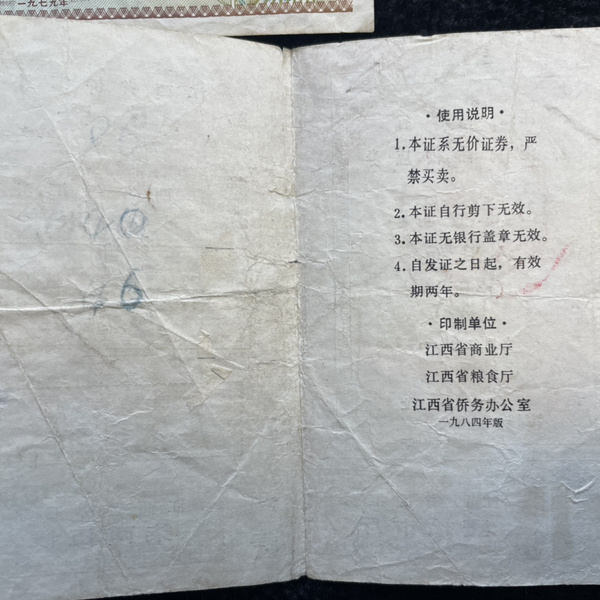 一九七九年
·使用说明·
1.本证系无价证券，严
禁买卖。
2.本证自行剪下无效。
3.本证无银行盖章无效。
4.自发证之日起，有效
期两年。
·印制单位·
江西省商业厅
江西省粮食厅
江西省侨务办公室
一九八四年版
6